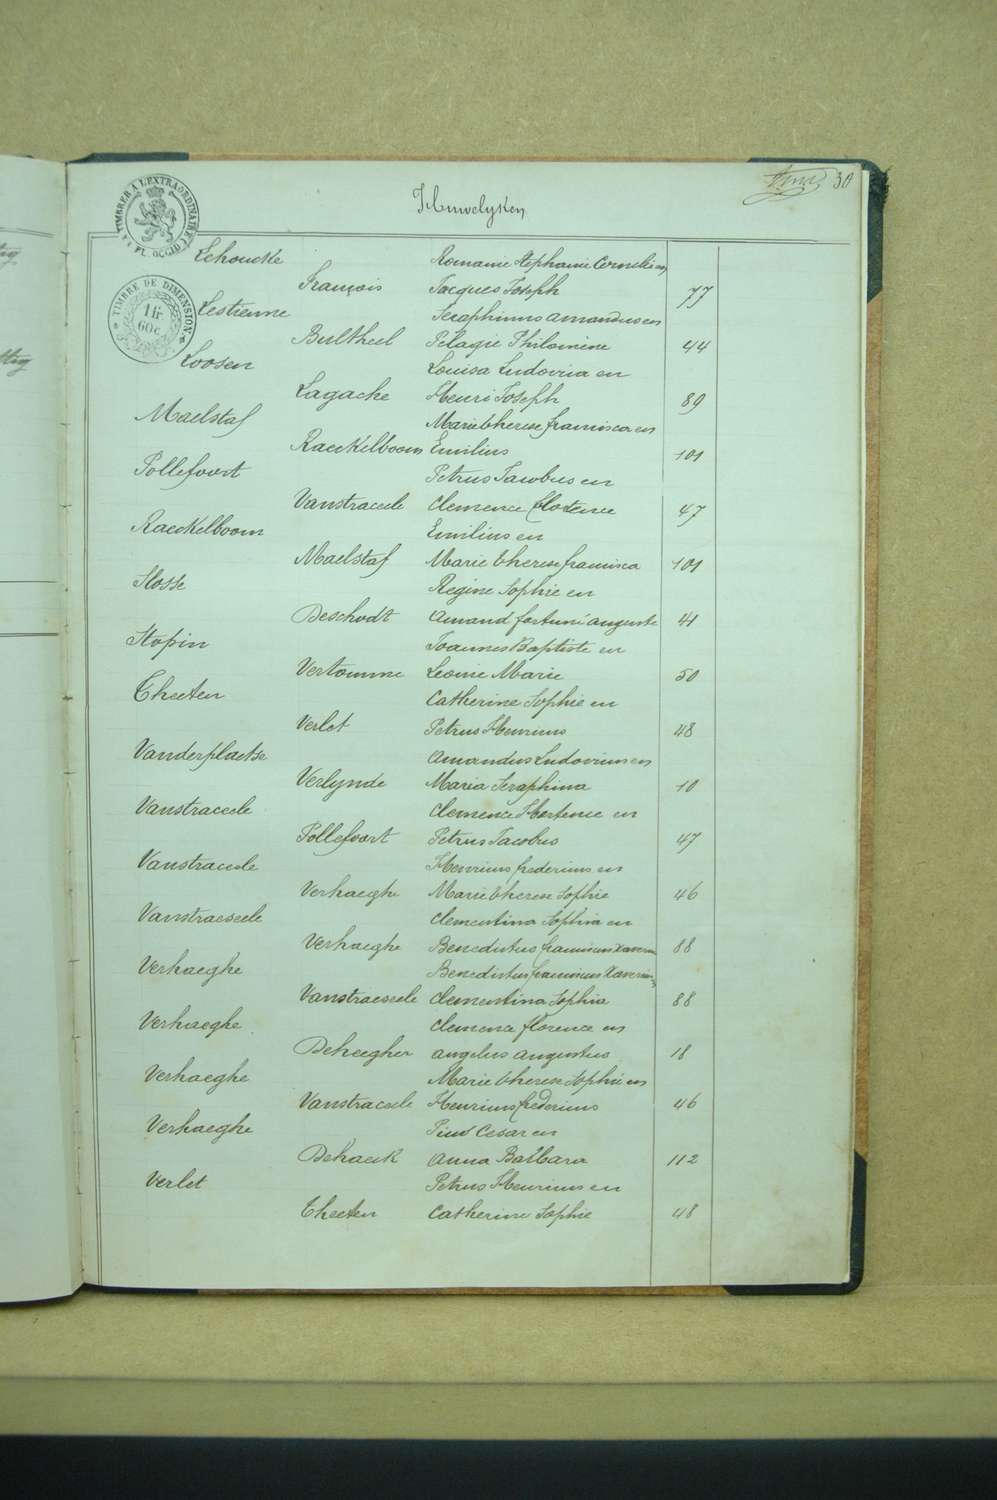 30
Huwelyken
TIMBRER A L'EXTRAORDINAIRE
FL. OCCID.
Lehoucke Romanie Stephanie Cornelie en
François Jacques Joseph 77
TIMBRE DE DIMENSION
1 fr
60 c
Lestienne Seraphinus Amandus en
Bultheel Pélagie Philomène 44
Loosen Louisa Ludovica en
Lagache Henri Joseph 89
Maelstaf Marie therese francisca en
Raeckelboom Emilius 101
Pollefoort Petrus Jacobus en
Vanstraceele Clemence Hortence 47
Raeckelboom Emilius en
Maelstaf Marie therese francisca 101
Slosse Regine Sophie en
Deschodt Amand fortuné Auguste 41
Stopin Joannes Baptiste en
Vertomme Leonie Marie 50
Theeten Catherine Sophie en
Verlet Petrus Henricus 48
Vanderplaetse Amandus Ludovicus en
Verlynde Maria Seraphina 10
Vanstraceele Clemence Hortence en
Pollefoort Petrus Jacobus 47
Vanstraceele Henricus fredericus en
Verhaeghe Marie therese Sophie 46
Vanstraeseele Clementina Sophia en
Verhaeghe Benedictus franciscus Xaverius 88
Verhaeghe Benedictus franciscus Xaverius
Vanstraeseele Clementina Sophia 88
Verhaeghe Clemence florence en
Deheegher Angelus Augustus 18
Verhaeghe Marie therese Sophie en
Vanstraceele Henricus fredericus 46
Verhaeghe Pieu Cesar en
Dehaeck Anna Barbara 112
Verlet Petrus Henricus en
Theeten Catherine Sophie 48